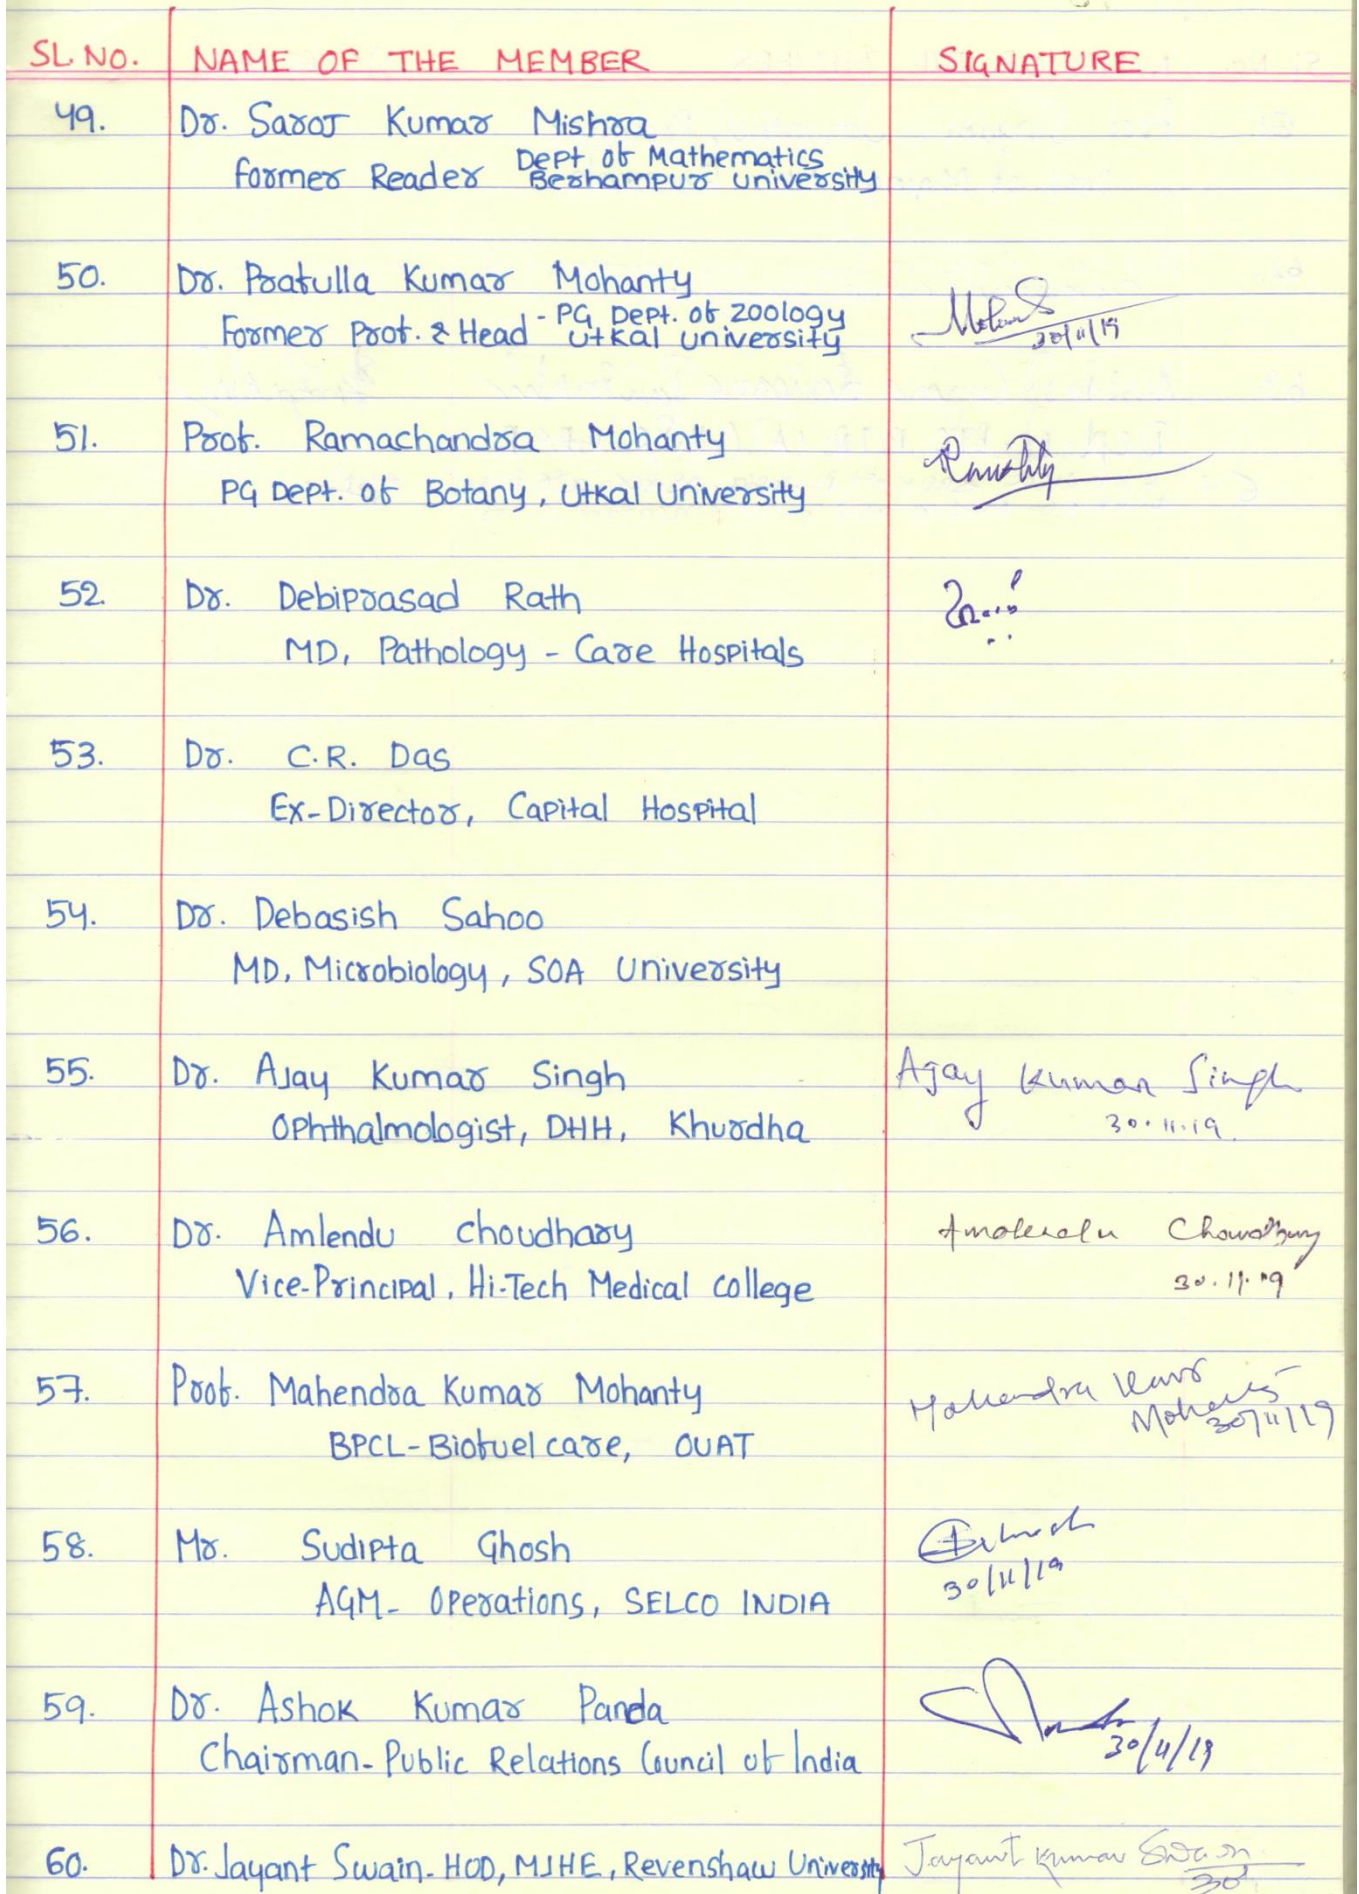 SL NO. NAME OF THE MEMBER SIGNATURE
49. Dr. Saroj Kumar Mishra
Former Reader Dept of Mathematics
Berhampur University
50. Dr. Prafulla Kumar Mohanty
Former Prof. & Head - PG Dept. of Zoology
Utkal University
30/11/19
51. Prof. Ramachandra Mohanty
PG Dept. of Botany, Utkal University
52. Dr. Debiprasad Rath
MD, Pathology - Care Hospitals
53. Dr. C.R. Das
Ex-Director, Capital Hospital
54. Dr. Debasish Sahoo
MD, Microbiology, SOA University
55. Dr. Ajay Kumar Singh Ajay Kumar Singh
Ophthalmologist, DHH, Khurdha 30.11.19
56. Dr. Amlendu Choudhary Chowdhury
Vice-Principal, Hi-Tech Medical College 30.11.19
57. Prof. Mahendra Kumar Mohanty Mahendra
BPCL-Biofuel care, OUAT 30/11/19
58. Mr. Sudipta Ghosh
30/11/19
AGM- Operations, SELCO INDIA
59. Dr. Ashok Kumar Panda
Chairman- Public Relations Council of India 30/11/19
60. Dr. Jayant Swain- HOD, MJHE, Revenshaw University Jayant Kumar Swain
30